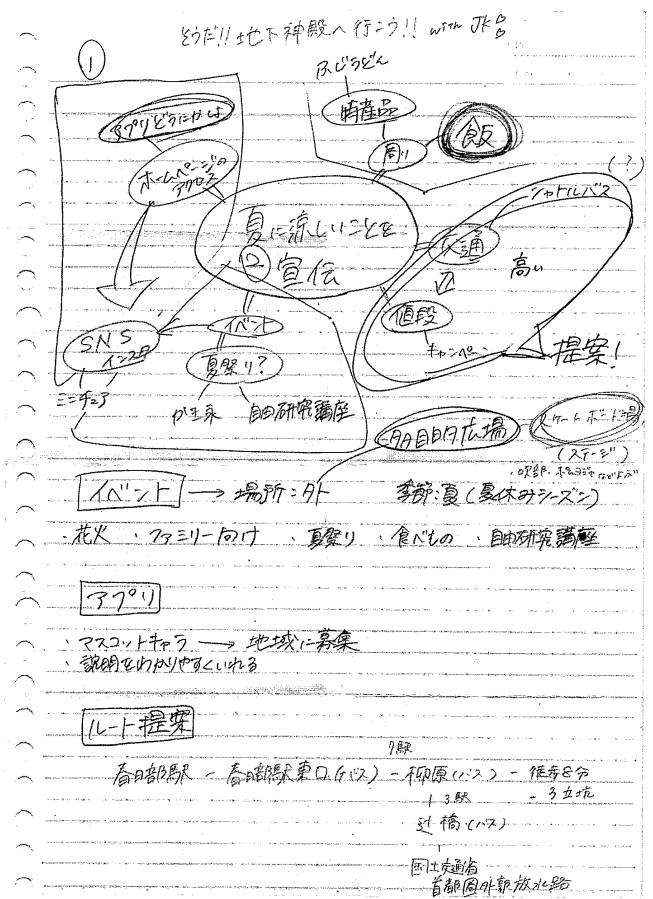 そうだ!! 地下神殿へ行こう!! with JK
①
ふじうどん
特産品
周り
飯
アプリどうにかしよ
ホームページの
アクセス
夏に涼しいことを
② 宣伝
(?)
シャトルバス
交通
高い
値段
キャンペーン
提案!
SNS
インスタ
ミニチュア
イベント
夏祭り?
自由研究講座
多目的広場
スケートボード場
(ステージ)
イベント → 場所:外 季節:夏(夏休みシーズン)
・花火 ・ファミリー向け ・夏祭り ・食べもの ・自由研究講座
アプリ
・マスコットキャラ → 地域に募集
・説明をわかりやすくいれる
ルート提案
7駅
春日部駅 - 春日部駅東口(バス) - 柳原(バス) - 徒歩8分
3駅
橋(バス)
国土交通省
首都圏外郭放水路